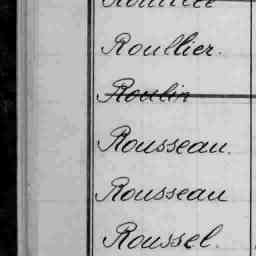 Roullier.
Roulin
Rousseau.
Rousseau
Roussel.